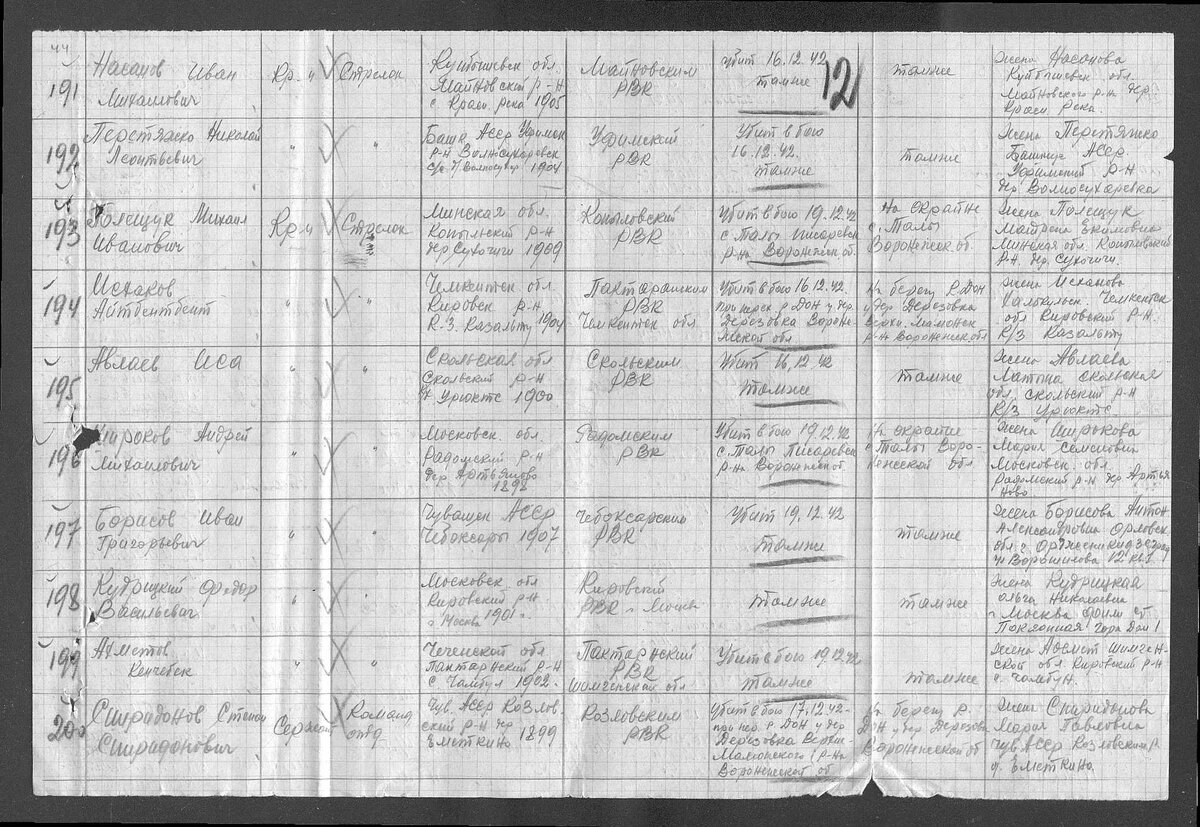 44
12
191
Насанов Иван
Михайлович
Кр-ц
Стрелок
Куйбышевск обл.
Майновский р-н
с Красн. река 1905
Майновским
РВК
убит 16.12.42
тамже
тамже
жена Насанова
Куйбышевск. обл.
Майновского р-н дер
Красн. Река.
192
Перетяжко Николай
Леонтьевич
"
"
Башк Асср Уфимск
р-н
1904
Уфимский
РВК
Убит в бою
16.12.42.
тамже
тамже
жена Перетяжко
Башкир АССР.
Уфимский Р-Н
дер. Волносухаревка
193
Полещук Михаил
Иванович
Кр-ц
Стрелок
Минская обл.
Копыльский р-н
дер Сухочичи 1909
Копыловский
РВК
Убит в бою 19.12.42
с Талы Писаревск
р-на Воронежск об.
На окраине
с. Талы
Воронежск об.
жена Полещук
Матрена Екимовна
Минская обл. Копыльский
р-н. дер. Сухочичи.
194
Исхаков
Айтбентбент
"
"
Чемкентск обл.
Кировск р-н
К-З. Казалту 1904
Пахтаральским
РВК
Чемкентск обл.
Убит в бою 16.12.42.
при перех р. ДОН у дер.
Дерезовка Воронежской обл
На берегу р. ДОН
у дер Дерезовка
Верхн. Мамонск
р-н Воронежск обл
жена Исханова
Чемкентск
обл Кировский р-н.
К/З Казалту
195
Авлаев Иса
"
"
Скольская обл
Скольский р-н
Урюктс 1900
Скольским
РВК
Убит 16.12.42
тамже
тамже
жена Авлаева
Матыша Скольская
обл. Скольский р-н
К/З Урюктс
196
Широков Андрей
Михайлович
"
"
Московск. обл
Радомский р-н
дер Артьямово
1898
Радомским
РВК
Убит в бою 19.12.42
с. Талы Писаревск
р-на Воронежской об
На окраине
с Талы Воро-
нежской обл
жена Широкова
Мария Семеновна
Московск. обл.
Радомский р-н др Артья
ново
197
Борисов Иван
Григорьевич
"
"
Чувашск АССР
Чебоксары 1907
Чебоксарским
РВК
Убит 19.12.42
тамже
тамже
жена Борисова Антон
Александровна Орловск
обл г Орджоникидзеград
ул Ворошилова 12 кв.1
198
Кудрицкий Федор
Васильевич
"
"
Московск. обл
Кировский р-н.
г Москва 1901
Кировский
РВК г. Москв
тамже
тамже
жена Кудрицкая
Ольга Николаевна
г. Москва фили ст
Поклонная гора Дом 1
199
Ахметов
Кенчебек
"
"
Чеченской обл
Пахтарнский р-н
с Чамбул 1902
Пахтарнский
РВК
Шомгенской обл
Убит в бою 19.12.42
тамже
тамже
жена Ахмет Шимген-
ской обл. Кировский р-н
с. Чамбул.
200
Спиридонов Степан
Спиридонович
Сержант
Команд
отд
Чув. Асср Козлов-
ский р-н дер
Еметкино 1899
Козловским
РВК
Убит в бою 17.12.42-
при пер. р Дон у дер
Дерезовка Верхн-
Мамонского р-на
Воронежской об
На берегу р.
Дон у дер Дерезовка
Воронежской об
жена Спиридонова
Мария Павловна
Чув. АССР Козловский р
д. Еметкино.